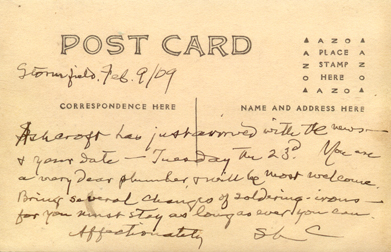 POST CARD
AZO
PLACE
STAMP
HERE
AZO
Stormfield, Feb. 9/09
CORRESPONDENCE HERE
NAME AND ADDRESS HERE
Ashcroft has just arrived with the news—
& your date — Tuesday the 23d. You are
a very dear plumber, & will be most welcome.
Bring several changes of soldering-irons—
for you must stay as long as ever you can.
Affectionately
SLC